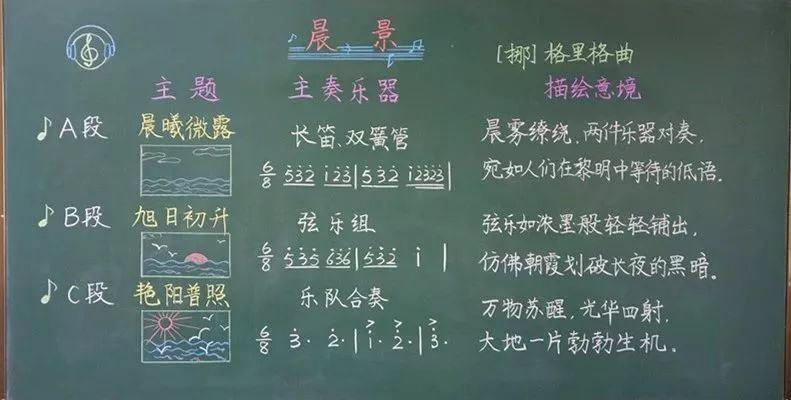 晨景
[挪]格里格曲
主题 主奏乐器 描绘意境
A段 晨曦微露 长笛、双簧管 晨雾缭绕,两件乐器对奏,
6/8 532 123|532 12323| 宛如人们在黎明中等待的低语。
B段 旭日初升 弦乐组 弦乐如浓墨般轻轻铺出,
6/8 535 636|532 1 | 仿佛朝霞划破长夜的黑暗。
C段 艳阳普照 乐队合奏 万物苏醒,光华四射,
6/8 3· 2·|1· 2·|3· 大地一片勃勃生机。